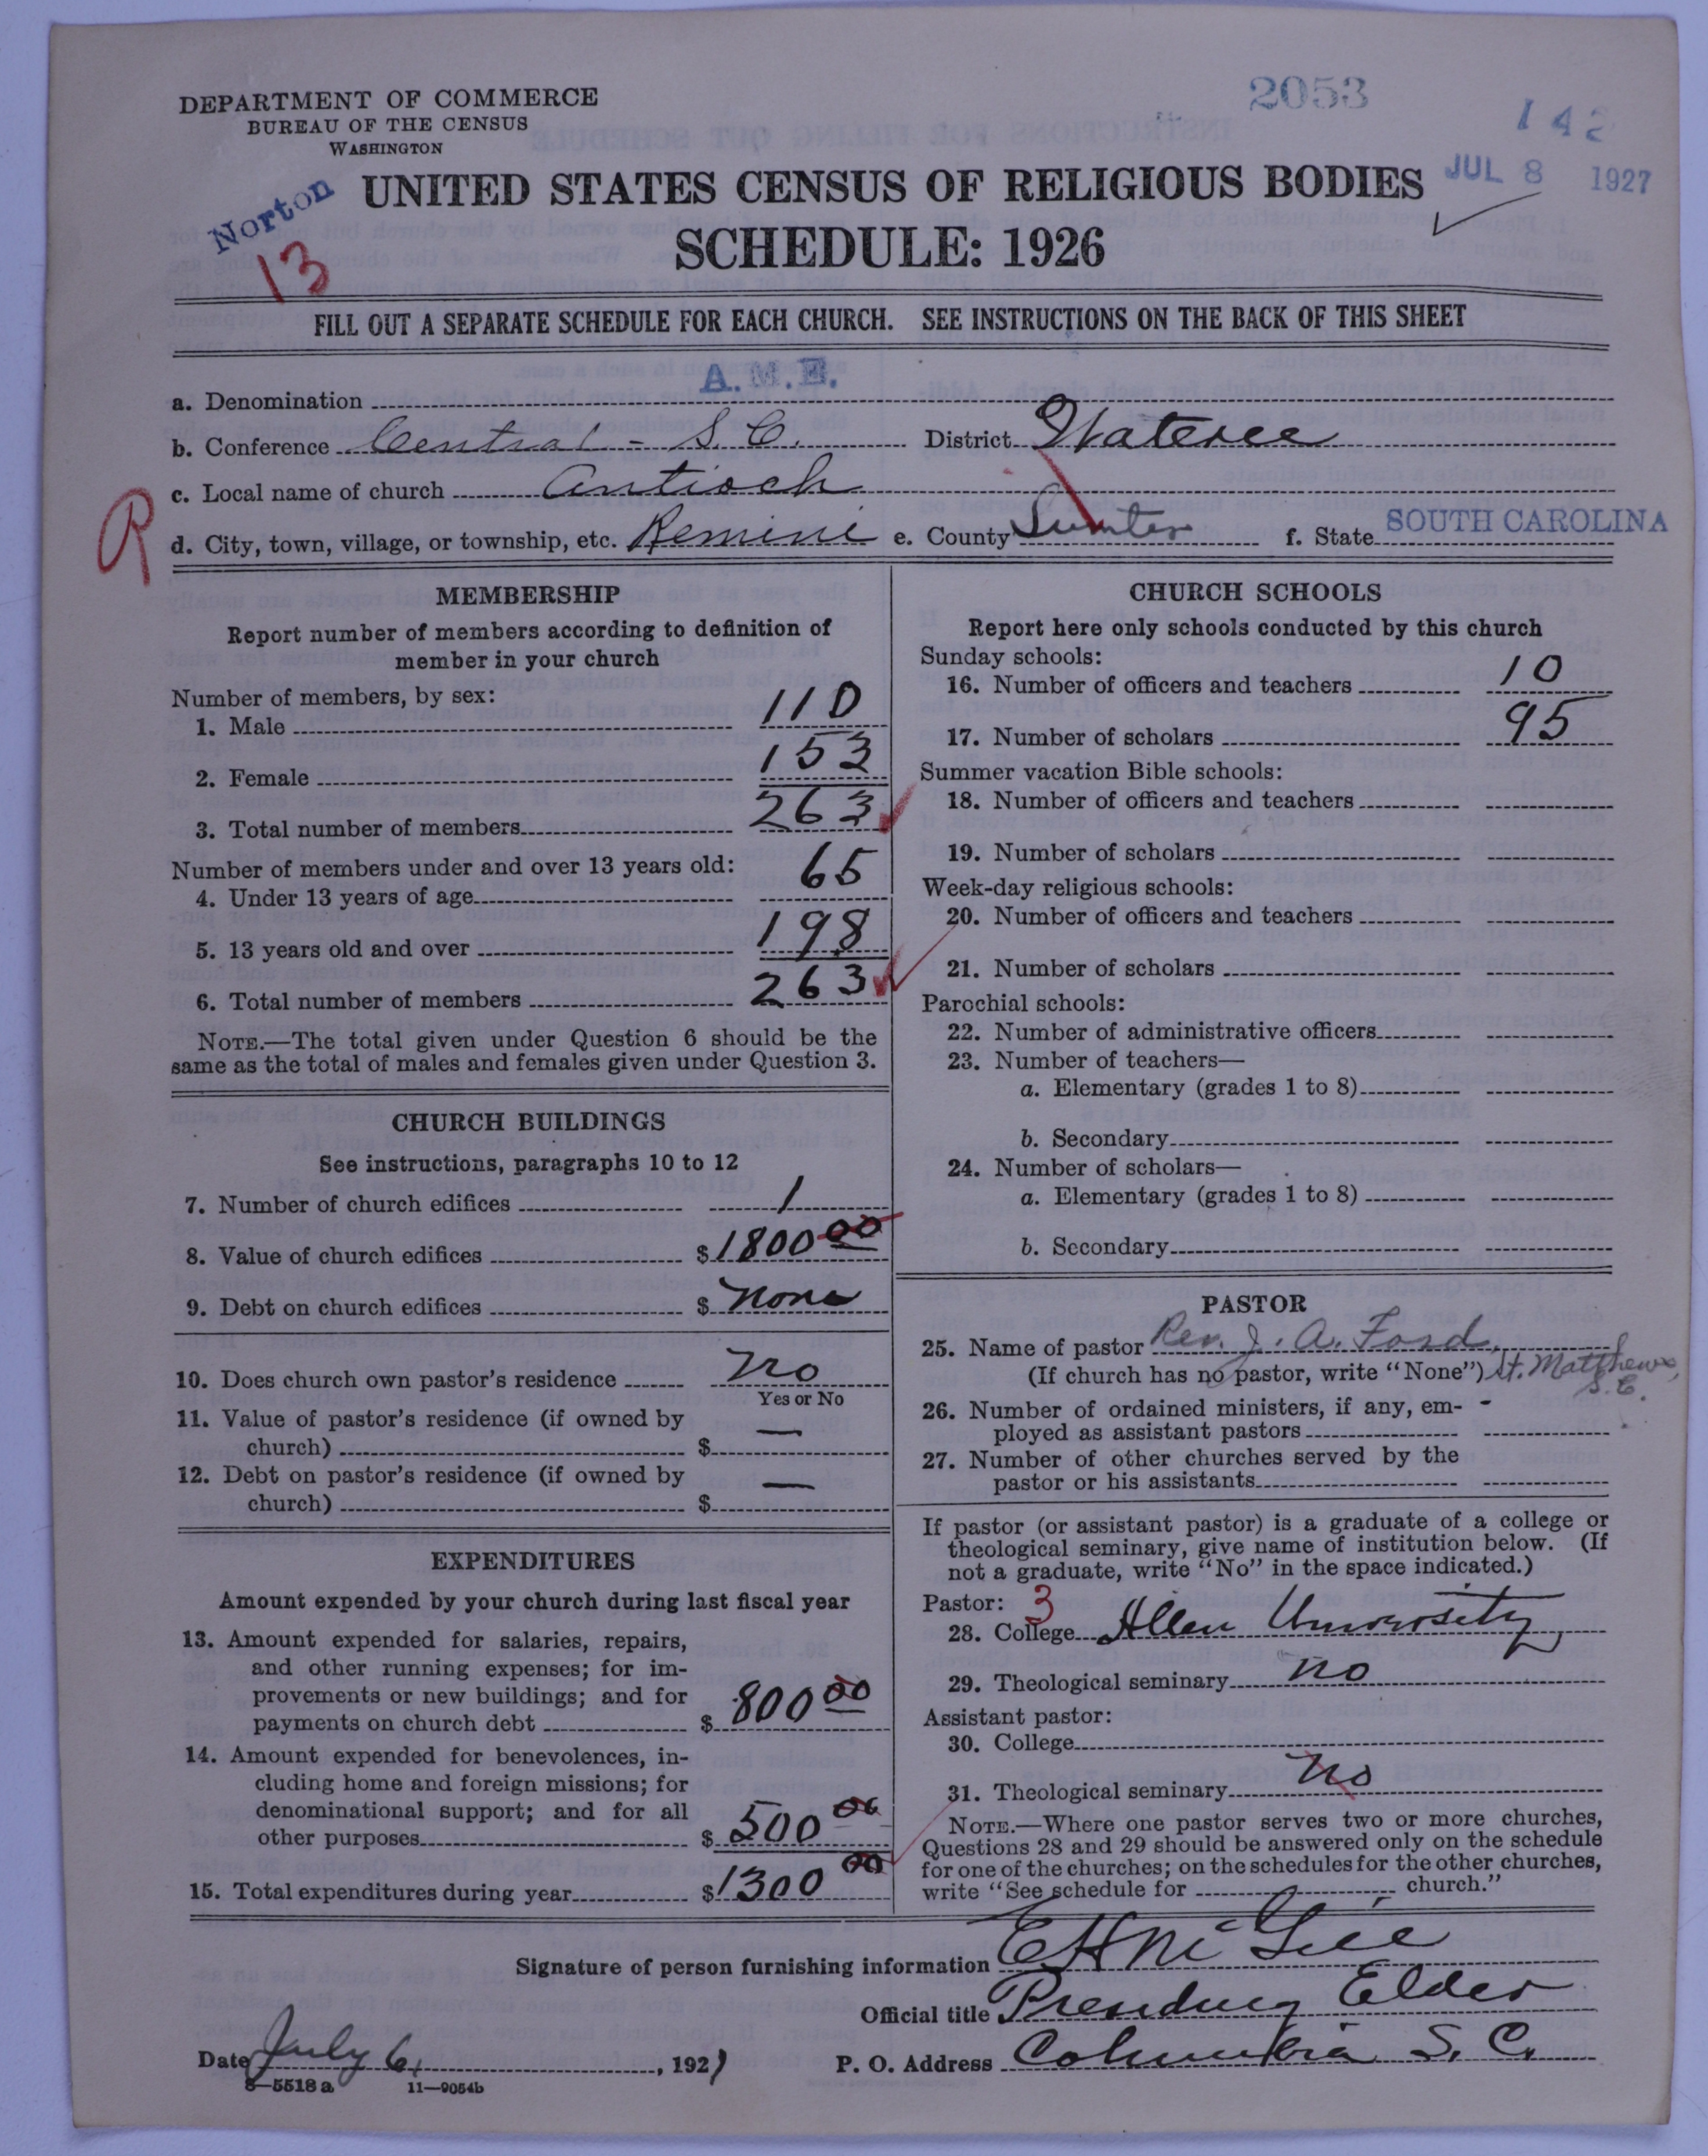 2053
142
DEPARTMENT OF COMMERCE
BUREAU OF THE CENSUS
WASHINGTON
JUL 8 1927
Norton
13
UNITED STATES CENSUS OF RELIGIOUS BODIES
SCHEDULE: 1926
FILL OUT A SEPARATE SCHEDULE FOR EACH CHURCH. SEE INSTRUCTIONS ON THE BACK OF THIS SHEET
a. Denomination A.M.E.
b. Conference Central - S.C. District Wateree
c. Local name of church Antioch
R
d. City, town, village, or township, etc. Remini e. County Sumter f. State SOUTH CAROLINA
MEMBERSHIP
Report number of members according to definition of
member in your church
Number of members, by sex:
1. Male 110
2. Female 153
3. Total number of members 263
Number of members under and over 13 years old:
4. Under 13 years of age 65
5. 13 years old and over 198
6. Total number of members 263
NOTE.—The total given under Question 6 should be the
same as the total of males and females given under Question 3.
CHURCH BUILDINGS
See instructions, paragraphs 10 to 12
7. Number of church edifices 1
8. Value of church edifices $ 1800 00
9. Debt on church edifices $ none
10. Does church own pastor's residence no
Yes or No
11. Value of pastor's residence (if owned by
church) $ —
12. Debt on pastor's residence (if owned by
church) $ —
EXPENDITURES
Amount expended by your church during last fiscal year
13. Amount expended for salaries, repairs,
and other running expenses; for im-
provements or new buildings; and for
payments on church debt $ 800 00
14. Amount expended for benevolences, in-
cluding home and foreign missions; for
denominational support; and for all
other purposes $ 500 00
15. Total expenditures during year $ 1300 00
CHURCH SCHOOLS
Report here only schools conducted by this church
Sunday schools:
16. Number of officers and teachers 10
17. Number of scholars 95
Summer vacation Bible schools:
18. Number of officers and teachers
19. Number of scholars
Week-day religious schools:
20. Number of officers and teachers
21. Number of scholars
Parochial schools:
22. Number of administrative officers
23. Number of teachers—
a. Elementary (grades 1 to 8)
b. Secondary
24. Number of scholars—
a. Elementary (grades 1 to 8)
b. Secondary
PASTOR
25. Name of pastor Rev. J. A. Ford,
(If church has no pastor, write "None") St. Matthews,
S.C.
26. Number of ordained ministers, if any, em- -
ployed as assistant pastors
27. Number of other churches served by the
pastor or his assistants
If pastor (or assistant pastor) is a graduate of a college or
theological seminary, give name of institution below. (If
not a graduate, write "No" in the space indicated.)
Pastor: 3
28. College Allen University
29. Theological seminary no
Assistant pastor:
30. College
31. Theological seminary no
NOTE.—Where one pastor serves two or more churches,
Questions 28 and 29 should be answered only on the schedule
for one of the churches; on the schedules for the other churches,
write "See schedule for church."
Signature of person furnishing information E H McGill
Official title Presiding Elder
Date July 6, 1927 P. O. Address Columbia S. C.
8—5518 a 11—9054b